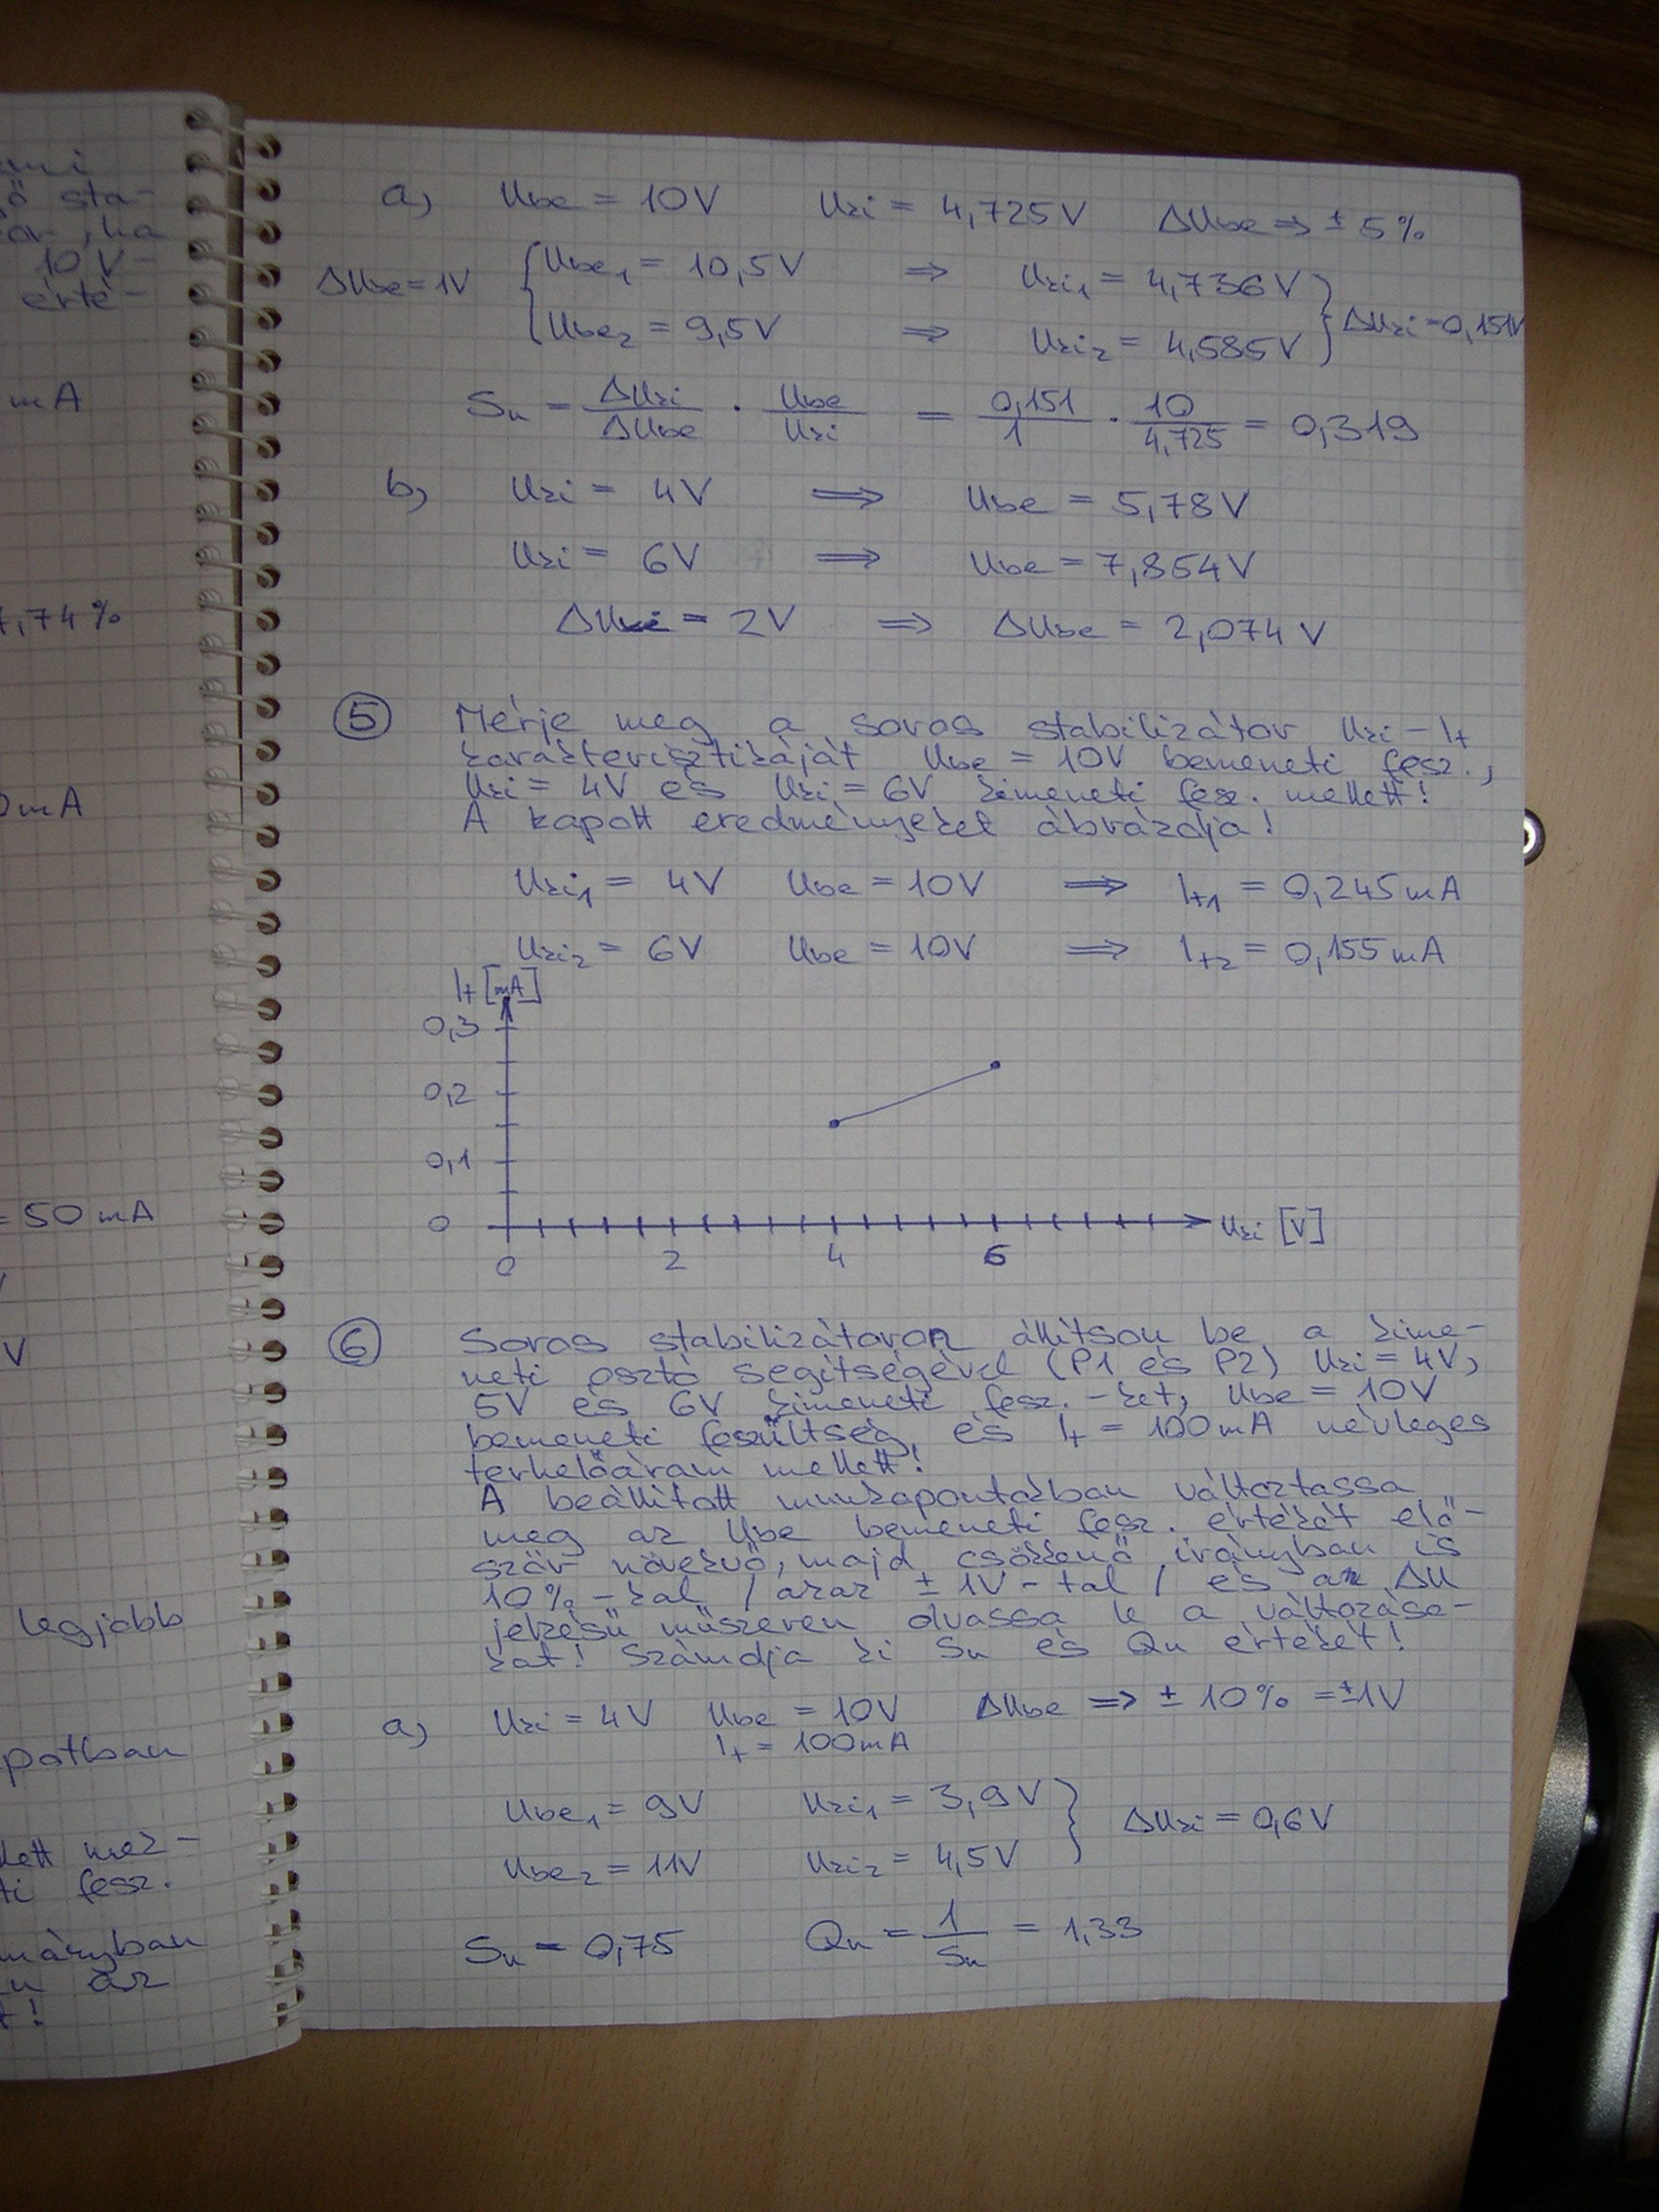 mi
ő sta-
or, ha
10 V-
érté-
mA
7,74%
0mA
= 50 mA
V
legjobb
patban
lett
ti fesz.
ar
t!
a) Ube = 10V Uki = 4,725V ΔUbe => ± 5%
ΔUbe = 1V { Ube1 = 10,5V => Uki1 = 4,736V } ΔUki = 0,151V
Ube2 = 9,5V => Uki2 = 4,585V
Su = ΔUki/ΔUbe · Ube/Uki = 0,151/1 · 10/4,725 = 0,319
b) Uki = 4V => Ube = 5,78V
Uki = 6V => Ube = 7,854V
ΔUki = 2V => ΔUbe = 2,074V
5 Mérje meg a soros stabilizátor Uki - It
karakterisztikáját Ube = 10V bemeneti fesz.,
Uki = 4V és Uki = 6V kimeneti fesz. mellett!
A kapott eredményeket ábrázolja!
Uki1 = 4V Ube = 10V => It1 = 0,245mA
Uki2 = 6V Ube = 10V => It2 = 0,155mA
It [mA]
0,3
0,2
0,1
0 Uki [V]
0 2 4 6
6 Soros stabilizátoron állítson be a kime-
neti osztó segítségével (P1 és P2) Uki = 4V,
5V és 6V kimeneti fesz.-ket, Ube = 10V
bemeneti feszültség, és It = 100mA névleges
terhelőáram mellett!
A beállított munkapontokban változtassa
meg az Ube bemeneti fesz. értékét elő-
ször növekvő, majd csökkenő irányban is
10%-kal / azaz ± 1V-tal / és a ΔU
jelzésű műszeren olvassa le a változáso-
kat! Számolja ki Su és Qu értékét!
a) Uki = 4V Ube = 10V ΔUbe => ± 10% = ±1V
It = 100mA
Ube1 = 9V Uki1 = 3,9V } ΔUki = 0,6V
Ube2 = 11V Uki2 = 4,5V
Su = 0,75 Qu = 1/Su = 1,33